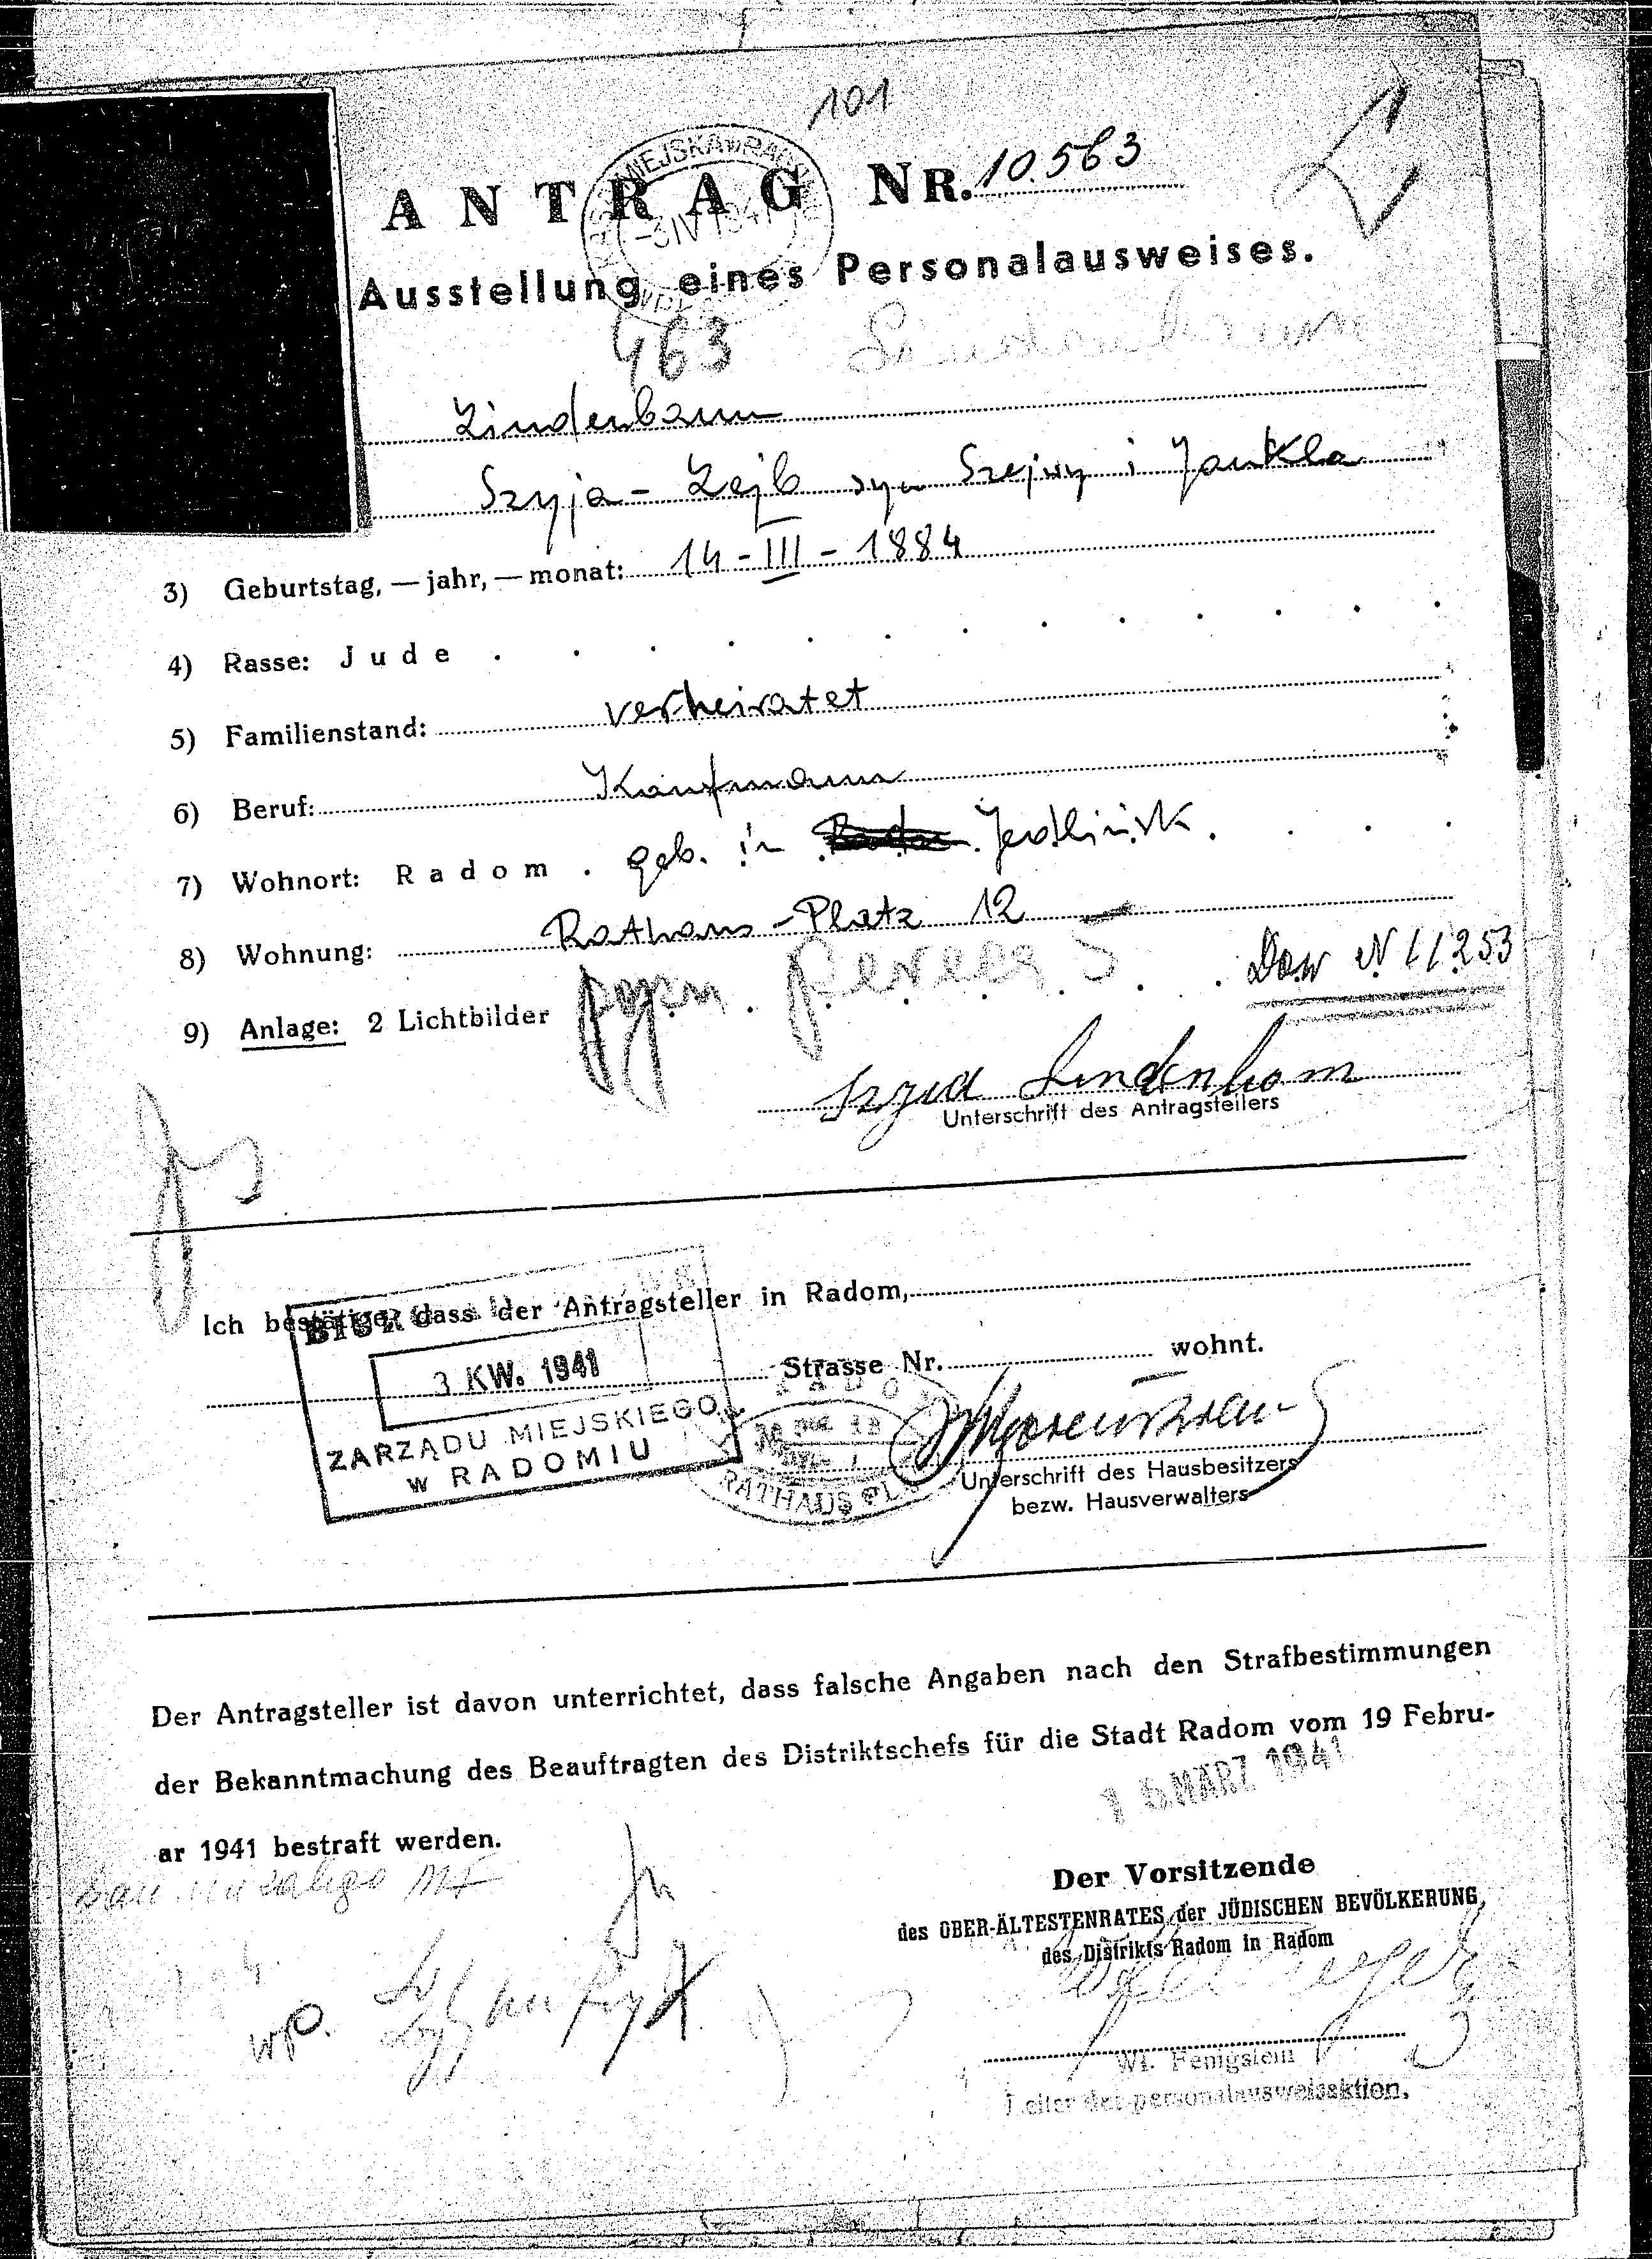 101
ANTRAG NR. 10.563
MIEJSKA w RA
-3 IV 1941
Ausstellung eines Personalausweises.
463
Lindenbaum
Szyja-Lejb syn Szejwy i Jankla
3) Geburtstag, — jahr, — monat: 14 - III - 1884
4) Rasse: Jude
5) Familienstand: verheiratet
6) Beruf: Kaufmann
7) Wohnort: Radom. geb. in Jedlińsk.
8) Wohnung: Rathaus-Platz 12
9) Anlage: 2 Lichtbilder
Dow N 11253
Szyja Lindenbom
Unterschrift des Antragstellers
Ich bestätige, dass der Antragsteller in Radom,
Strasse Nr. wohnt.
BIURO
3 KW. 1941
ZARZĄDU MIEJSKIEGO
w RADOMIU
RADOM
RATHAUS PL.
Unterschrift des Hausbesitzers
bezw. Hausverwalters
Der Antragsteller ist davon unterrichtet, dass falsche Angaben nach den Strafbestimmungen
der Bekanntmachung des Beauftragten des Distriktschefs für die Stadt Radom vom 19 Febru-
ar 1941 bestraft werden.
MÄRZ 1941
Der Vorsitzende
des OBER-ÄLTESTENRATES der JÜDISCHEN BEVÖLKERUNG
des Distrikts Radom in Radom
Wł. Fenigstein
Leiter der personalausweisaktion.